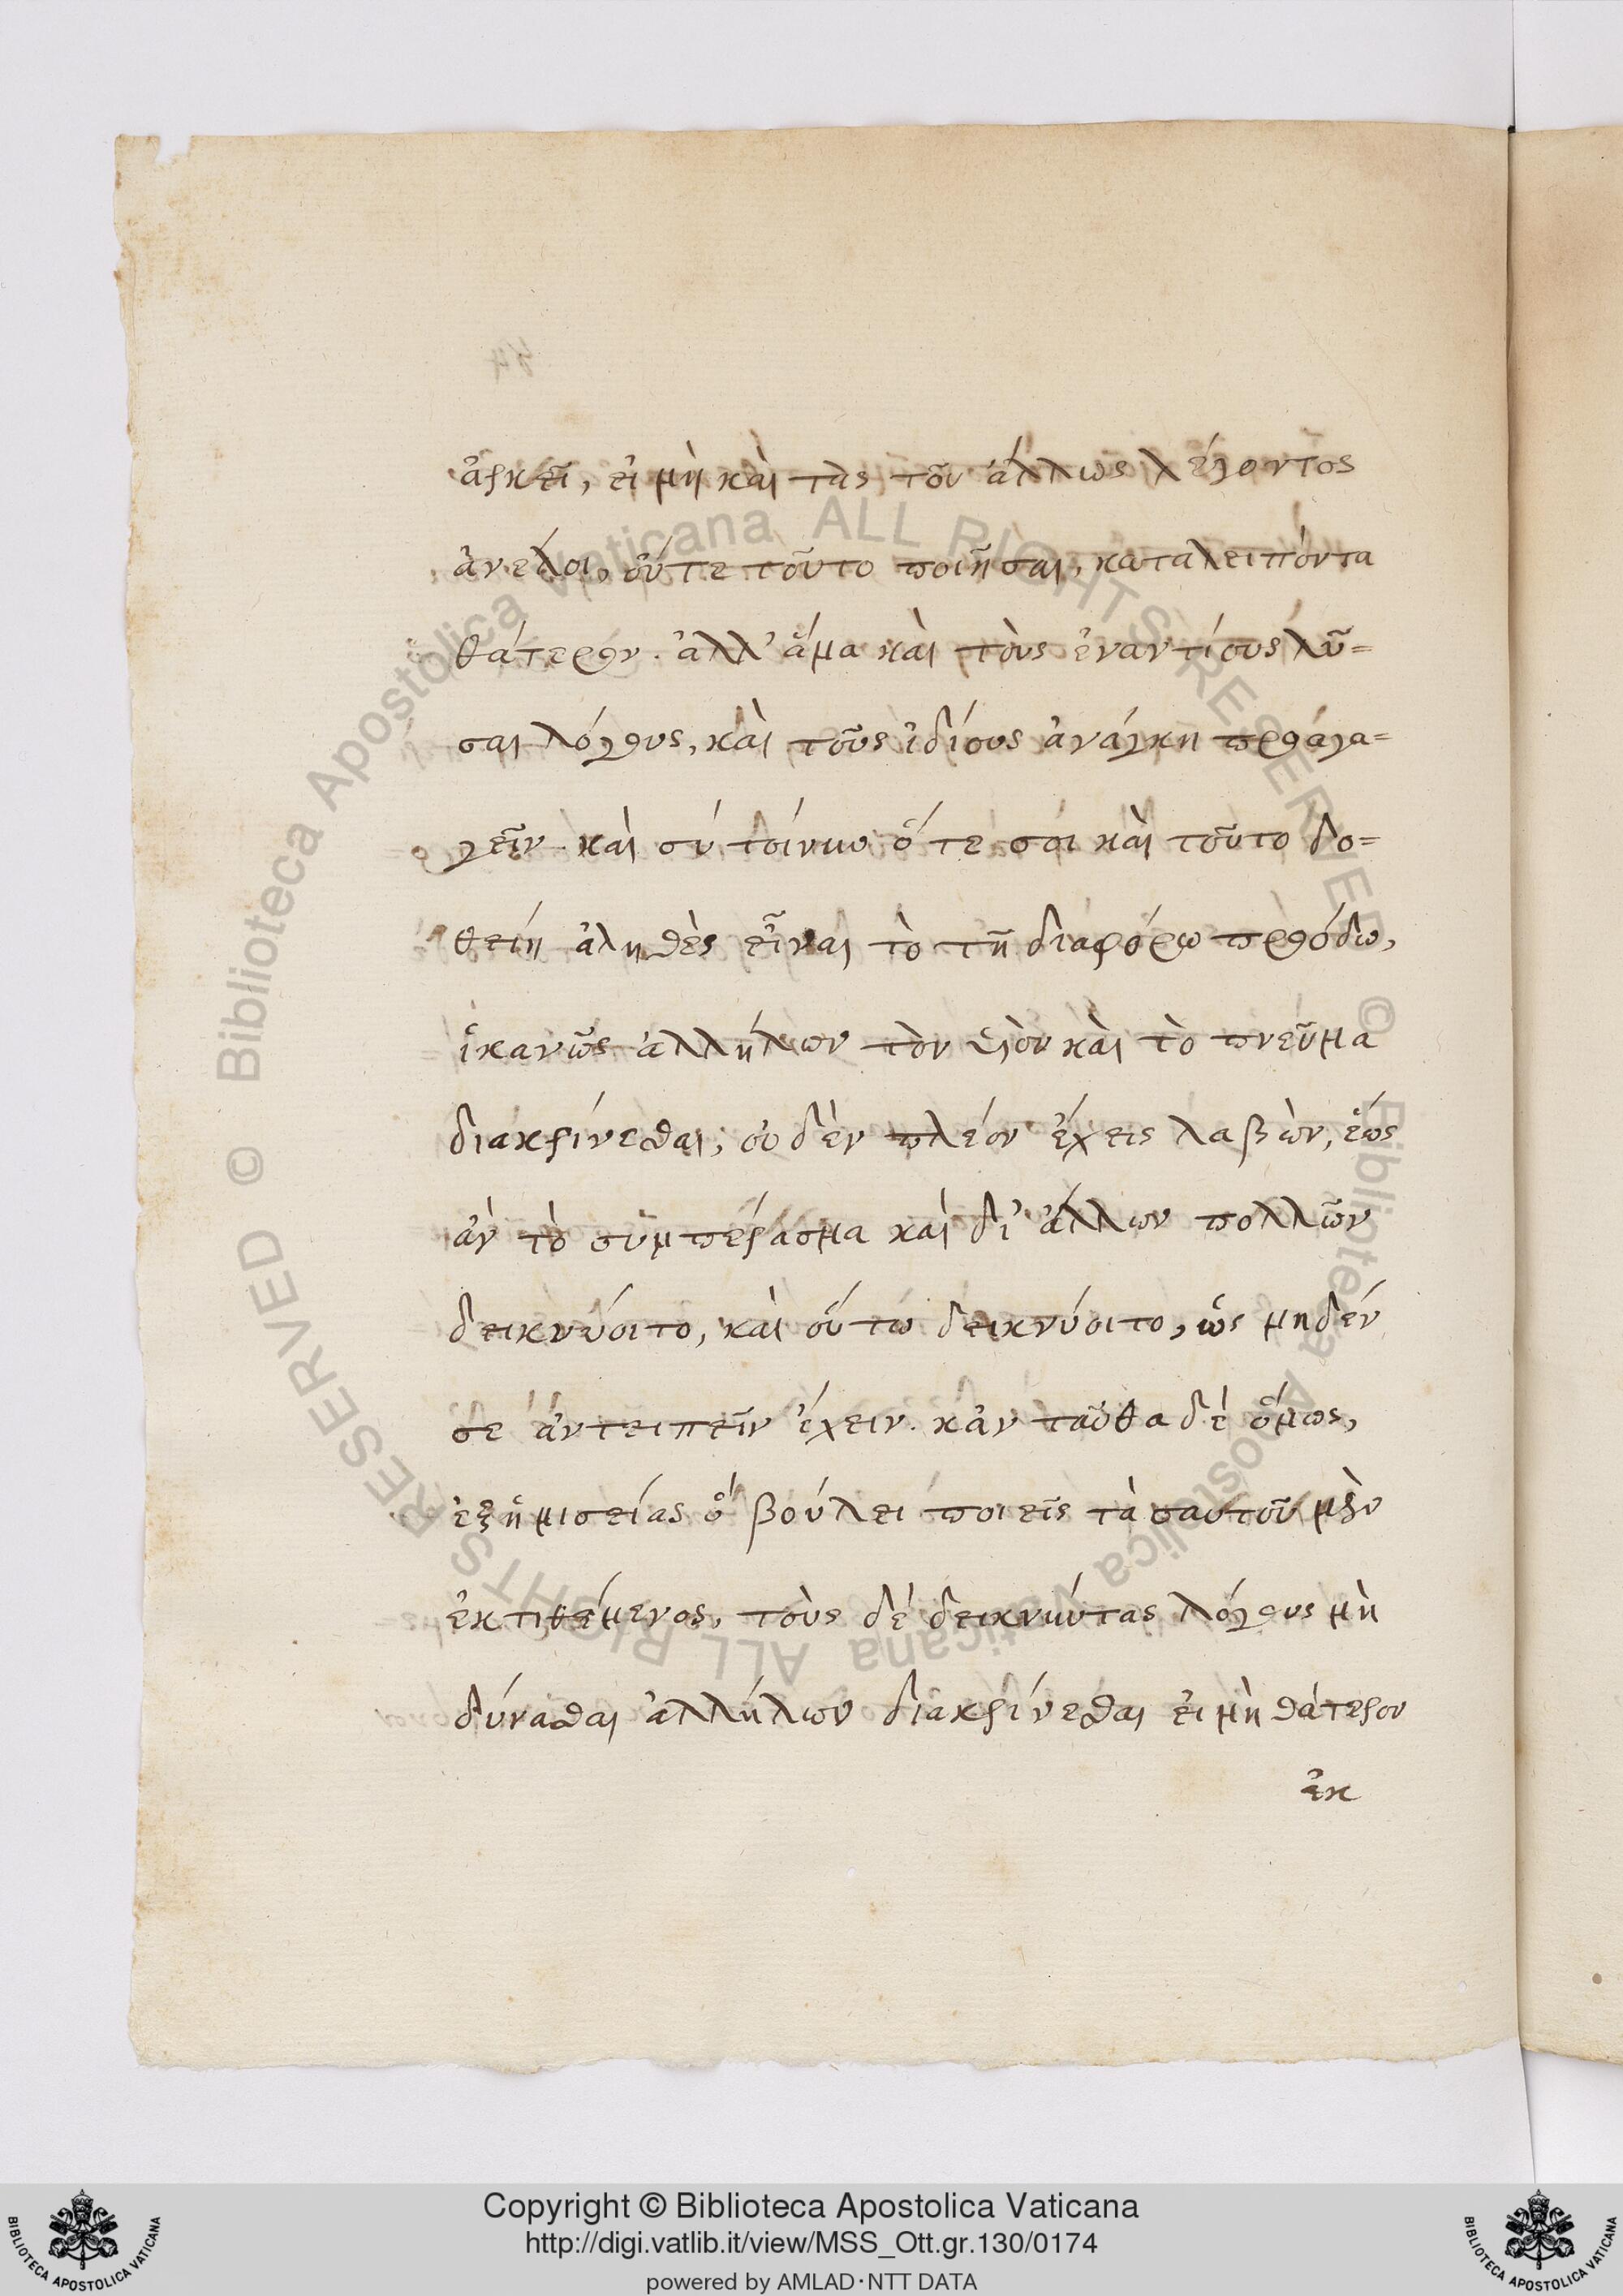 ἀρκεῖ, εἰ μὴ καὶ τὰς τοῦ ἄλλως λέγοντος
ἀνέλοι, οὔτε τοῦτο ποιῆσαι, καταλειπόντα
θάτερον. ἀλλ' ἅμα καὶ τοὺς ἐναντίους λῦ=
σαι λόγους, καὶ τοῦς ἰδίους ἀνάγκη προάγα=
γεῖν. καὶ σύ τοίνυν ὅτε σοι καὶ τοῦτο δο=
θείη ἀληθὲς εἶναι τὸ τῆ διαφόρω προόδω,
ἱκανῶς ἀλλήλων τὸν υἱὸν καὶ τὸ πνεῦμα
διακρίνεσθαι, οὐδὲν πλέον ἔχεις λαβὼν, ἕως
ἀν τὸ συμπέρασμα καὶ δι' ἄλλων πολλῶν
δεικνύοιτο, καὶ οὕτω δεικνύοιτο, ὡς μηδέν
σε ἀντειπεῖν ἔχειν. κἀν ταῦθα δέ ὅμως,
ἐξ ἡμισείας ὅ βούλει ποιεῖς τὰ σαυτοῦ μὲν
ἐκτιθέμενος, τοὺς δέ δεικνύντας λόγους μὴ
δύνασθαι ἀλλήλων διακρίνεσθαι εἰ μὴ θάτερον
ἐκ
Copyright © Biblioteca Apostolica Vaticana
http://digi.vatlib.it/view/MSS_Ott.gr.130/0174
powered by AMLAD·NTT DATA
BIBLIOTECA APOSTOLICA VATICANA
BIBLIOTECA APOSTOLICA VATICANA
© Biblioteca Apostolica Vaticana ALL RIGHTS RESERVED
© Biblioteca Apostolica Vaticana ALL RIGHTS RESERVED